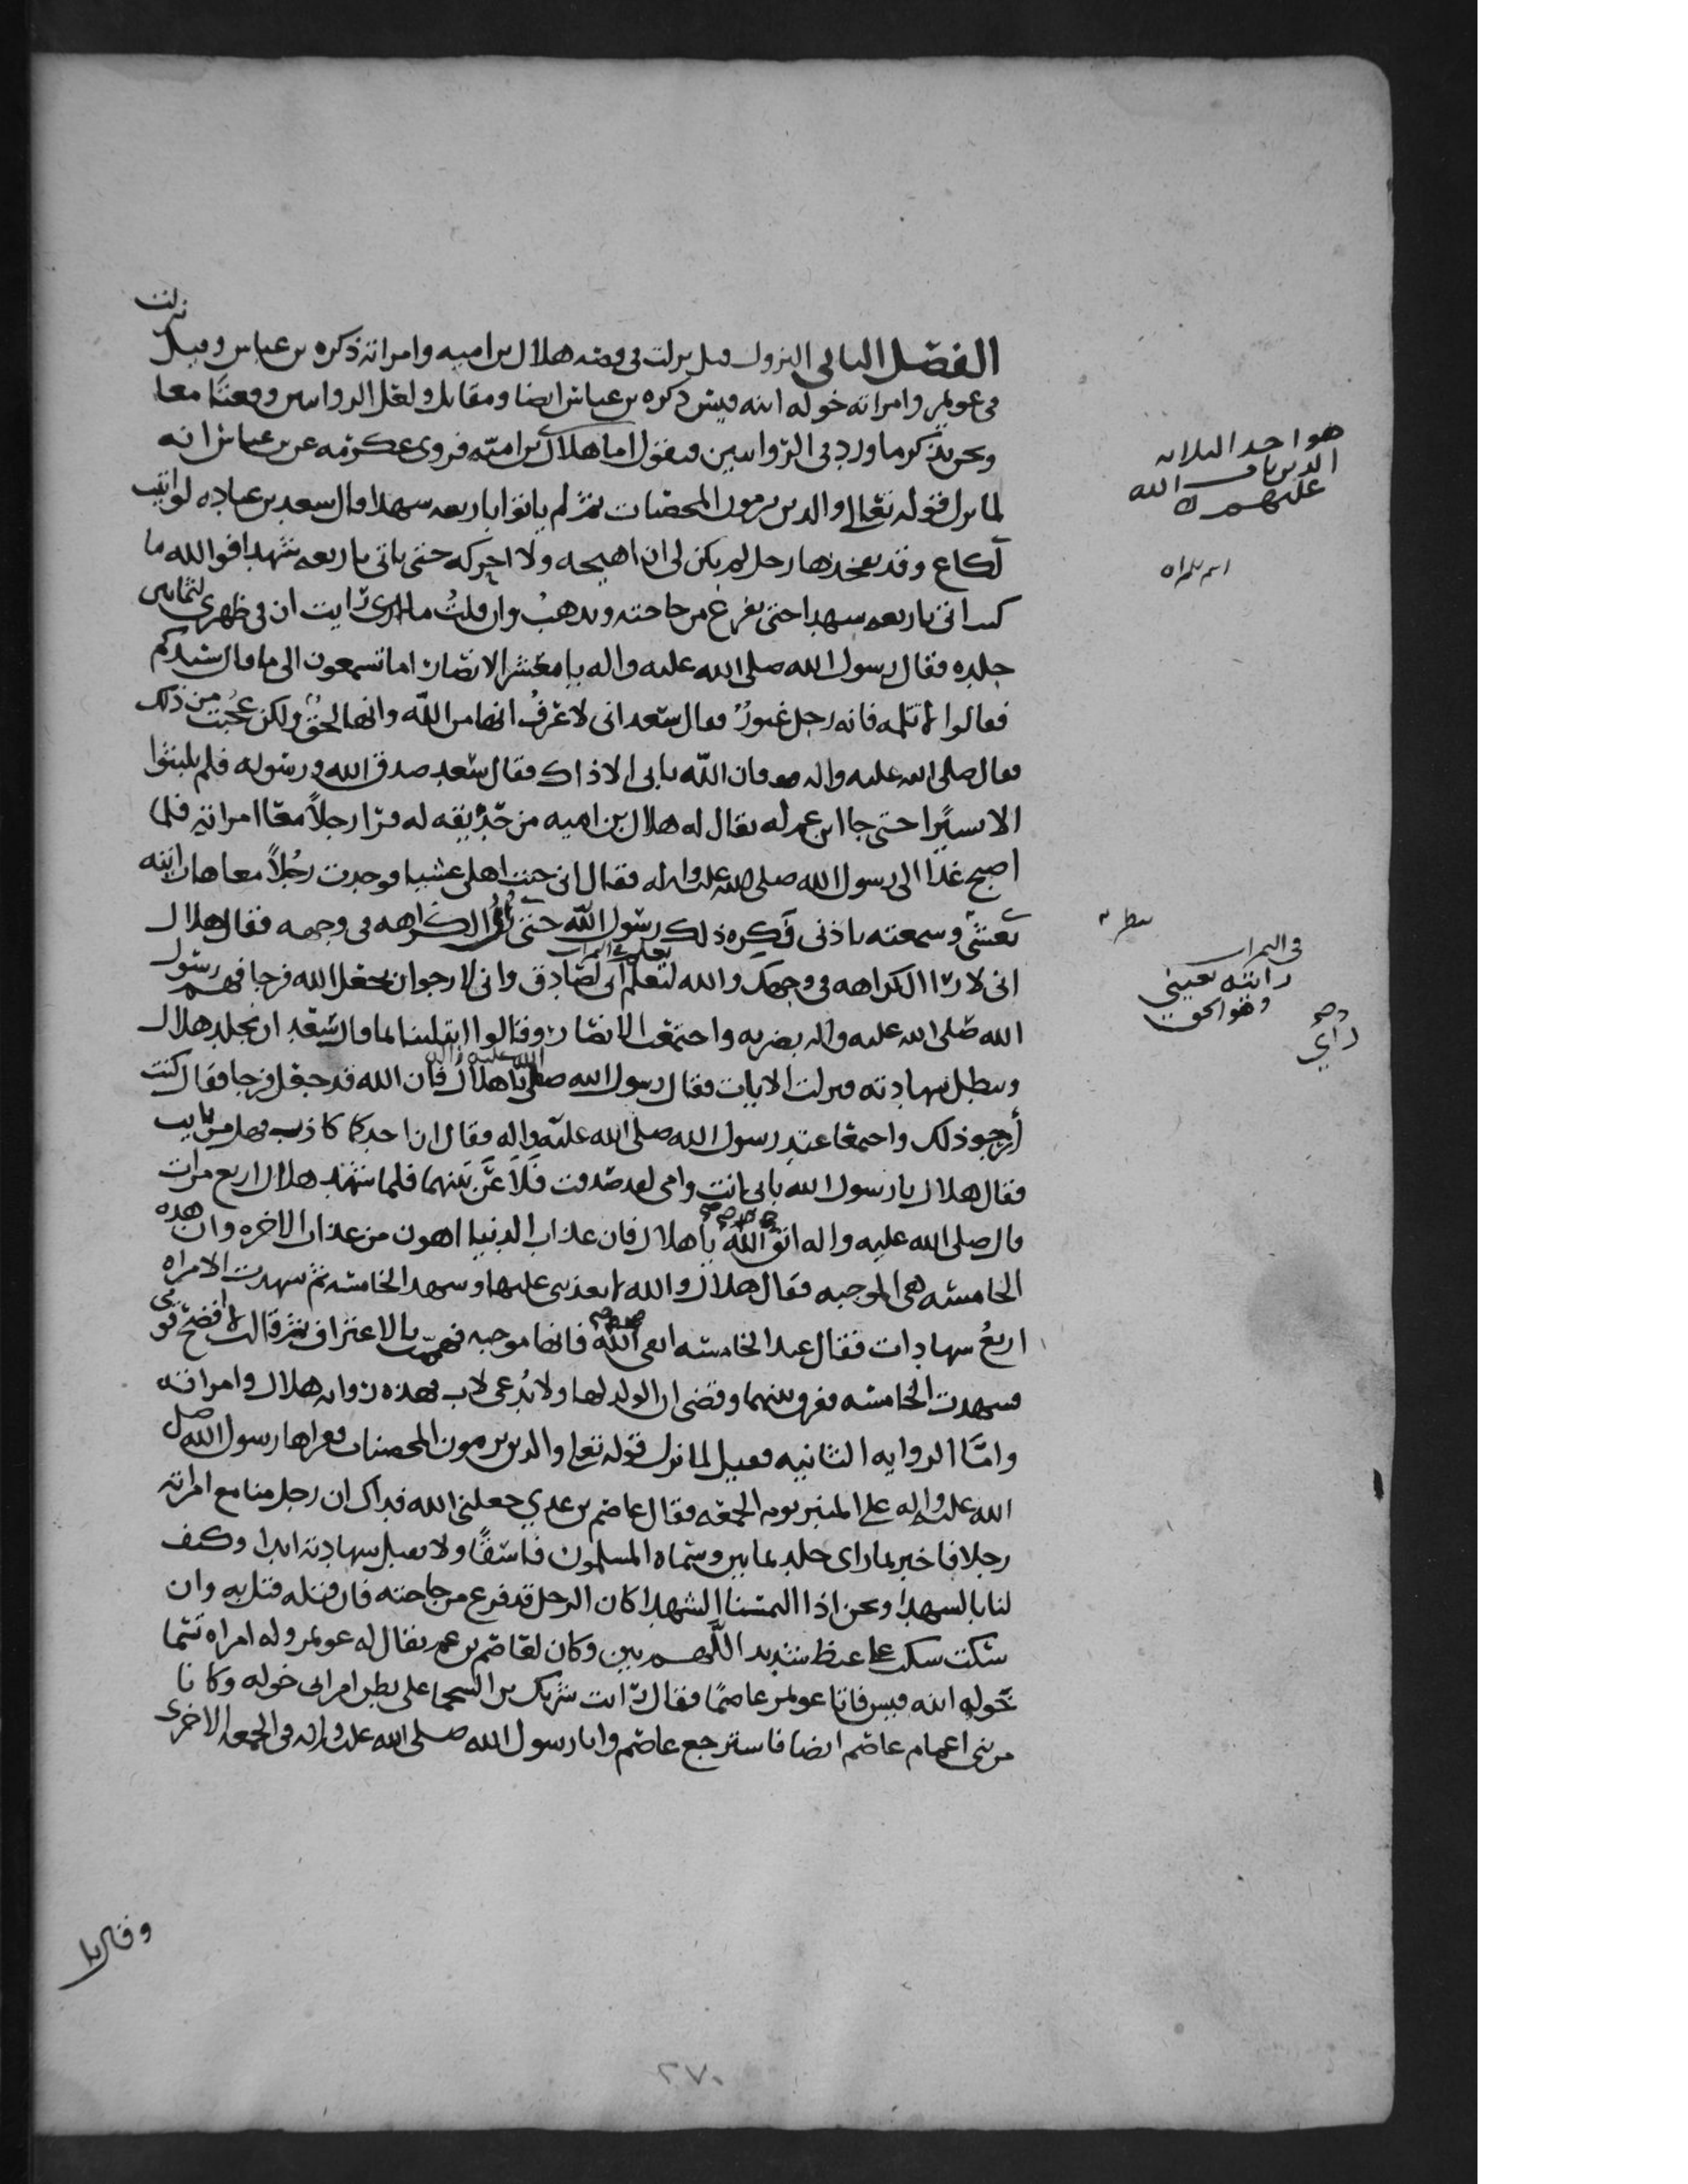 الفصل الثاني النزول قيل نزلت في قصه هلال بن اميه وامراته ذكره بن عباس وقيل نزلت
في عويمر وامراته خوله ابنه قيس ذكره بن عباس ايضا ومقاتل ولعل الروايتين وقعتا معا
ونحن نذكر ما ورد في الروايتين فنقول اما هلال بن اميه فروى عكرمه عن بن عباس انه
لما نزل قوله تعالى والذين يرمون المحصنات ثم لم ياتوا باربعه شهدا قال سعد بن عباده لو اتيت
لكاع وقد يفخذها رجل لم يكن لي ان اهيجه ولا احركه حتى ياتي باربعه شهدا فوالله ما
كنت اتي باربعه شهدا حتى يفرغ من حاجته ويذهب وان قلت ما رايت ان في ظهري لثمانين
جلده فقال رسول الله صلى الله عليه واله يا معشر الانصار اما تسمعون الى ما قال سيدكم
فقالوا لا تلمه فانه رجل غيور فقال سعد اني لاعرف انها من الله وانها لحق ولكن عجبت من ذلك
فقال صلى الله عليه واله فان الله يابى الا ذاك فقال سعد صدق الله ورسوله فلم يلبثوا
الا يسيرا حتى جا ابن عم له يقال له هلال بن اميه من حديقه له قد را رجلا مع امراته فلما
اصبح غدا الى رسول الله صلى الله عليه واله فقال اني جيت اهلي عشيا فوجدت رجلا معاها رايته
بعيني وسمعته باذني فكره ذلك رسول الله حتى را الكراهه في وجهه فقال هلال
اني لارا الكراهه في وجهك والله لتعلم اني لصادق واني لارجوا ان يجعل الله فرجا فهم رسول
الله صلى الله عليه واله بضربه واجتمعت الانصار وقالوا ابتلينا لما قال سعد ان يجلد هلال
وتبطل شهادته فنزلت الايات فقال رسول الله صلى الله عليه واله يا هلال فان الله قد جعل فرجا فقال كنت
أرجو ذلك واجتمعا عند رسول الله صلى الله عليه واله فقال ان احدكما كاذب فهل من تايب
فقال هلال يا رسول الله بابي انت وامي لقد صدقت فلاعن بينهما فلما شهد هلال اربع مرات
قال صلى الله عليه واله اتق الله يا هلال فان عذاب الدنيا اهون من عذاب الاخره وان هذه
الخامسه هي الموجبه فقال هلال والله لا يعذبني عليها وشهد الخامسه ثم شهدت الامراه
اربع شهادات فقال عند الخامسه اتقي الله فانها موجبه فهمت بالاعتراف ثم قالت لا افضح قومي
فشهدت الخامسه ففرق بينهما وقضى ان الولد لها ولا يدعى لاب فهذه روايه هلال وامراته
وامّا الروايه الثانيه فقيل لما نزل قوله تعلى والذين يرمون المحصنات فقراها رسول الله صلى
الله عليه واله على المنبر يوم الجمعه فقال عاصم بن عدي جعلني الله فداك ان رجل منا مع امراته
رجلا فاخبر بما راى جلد ثمانين وسماه المسلمون فاسقا ولا تقبل شهادته ابدا وكيف
لنا بالشهدا ونحن اذا التمسنا الشهدا كان الرجل قد فرغ من حاجته فان قتله قتل به وان
سكت سكت على غيظ شديد اللهم بين وكان لعاصم بن عم يقال له عويمر وله امراه تسما
خوله ابنه قيس فاتا عويمر عاصما فقال رايت شريك بن السحما على بطن امراتي خوله وكانا
من بني اعمام عاصم ايضا فاسترجع عاصم واتا رسول الله صلى الله عليه واله في الجمعه الاخرى
هو احد الثلاثه
الذين تاب الله
عليهم
رايته بعيني
وهو الحق
راي
٢٧٠